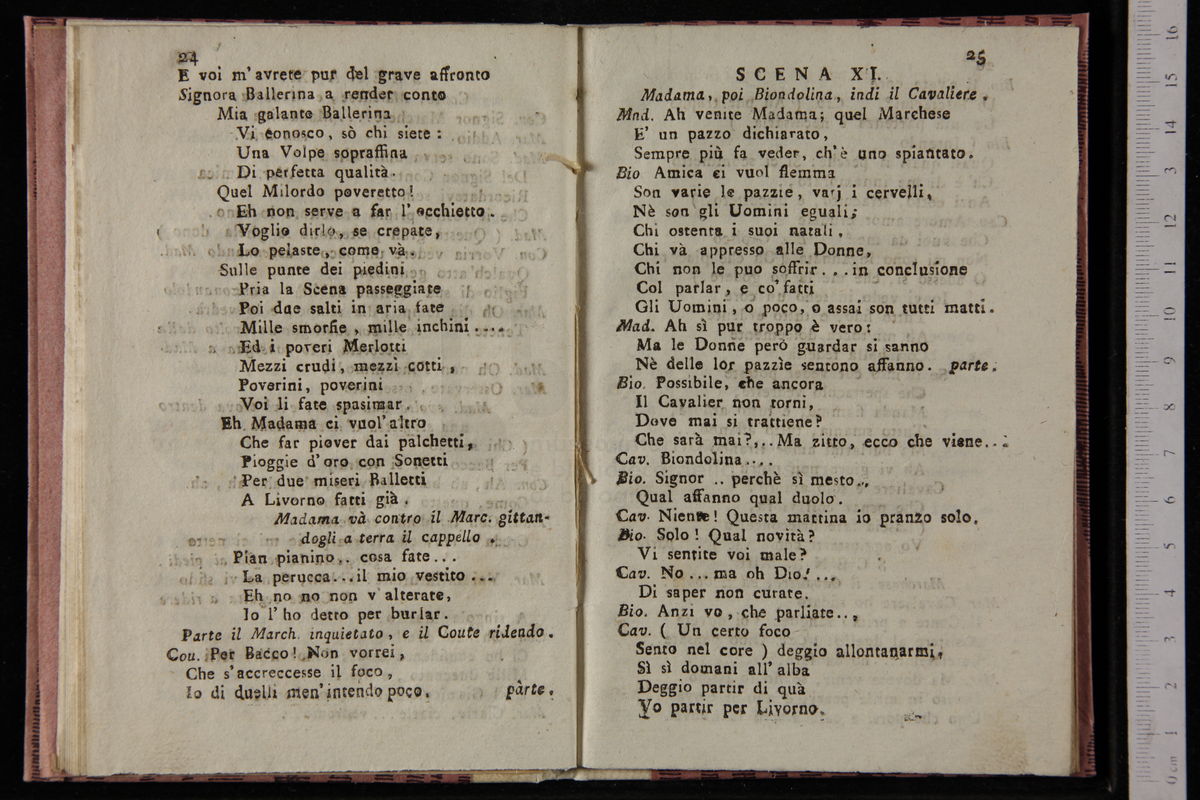 24
E voi m'avrete pur del grave affronto
Signora Ballerina a render conto
Mia galante Ballerina
Vi conosco, sò chi siete :
Una Volpe sopraffina
Di perfetta qualità.
Quel Milordo poveretto!
Eh non serve a far l'occhietto.
Voglio dirlo, se crepate,
Lo pelaste, come và.
Sulle punte dei piedini
Pria la Scena passeggiate
Poi due salti in aria fate
Mille smorfie, mille inchini ....
Ed i poveri Merlotti
Mezzi crudi, mezzi cotti,
Poverini, poverini
Voi li fate spasimar.
Eh Madama ci vuol'altro
Che far piover dai palchetti,
Pioggie d'oro con Sonetti
Per due miseri Balletti
A Livorno fatti già.
Madama và contro il Marc. gittan-
dogli a terra il cappello.
Pian pianino,. cosa fate...
La perucca...il mio vestito ...
Eh no no non v alterate,
Io l'ho detto per burlar.
Parte il March. inquietato, e il Coute ridendo.
Cou. Per Bacco! Non vorrei,
Che s'accreccesse il foco,
Io di duelli men'intendo poco. parte.
25
SCENA XI.
Madama, poi Biondolina, indi il Cavaliere.
Mnd. Ah venite Madama; quel Marchese
E' un pazzo dichiarato,
Sempre più fa veder, ch'è uno spiantato.
Bio Amica ci vuol flemma
Son varie le pazzie, varj i cervelli,
Nè son gli Uomini eguali;
Chi ostenta i suoi natali,
Chi và appresso alle Donne,
Chi non le puo soffrir...in conclusione
Col parlar, e co'fatti
Gli Uomini, o poco, o assai son tutti matti.
Mad. Ah sì pur troppo è vero:
Ma le Donne però guardar si sanno
Nè delle lor pazzìe sentono affanno. parte.
Bio. Possibile, che ancora
Il Cavalier non torni,
Dove mai si trattiene?
Che sarà mai?,..Ma zitto, ecco che viene...
Cav. Biondolina....
Bio. Signor .. perchè sì mesto..,
Qual affanno qual duolo.
Cav. Niente! Questa mattina io pranzo solo.
Bio. Solo! Qual novità?
Vi sentite voi male?
Cav. No ...ma oh Dio!...
Di saper non curate.
Bio. Anzi vo, che parliate..,
Cav. ( Un certo foco
Sento nel core ) deggio allontanarmi,
Sì sì domani all'alba
Deggio partir di quà
Vo partir per Livorno.